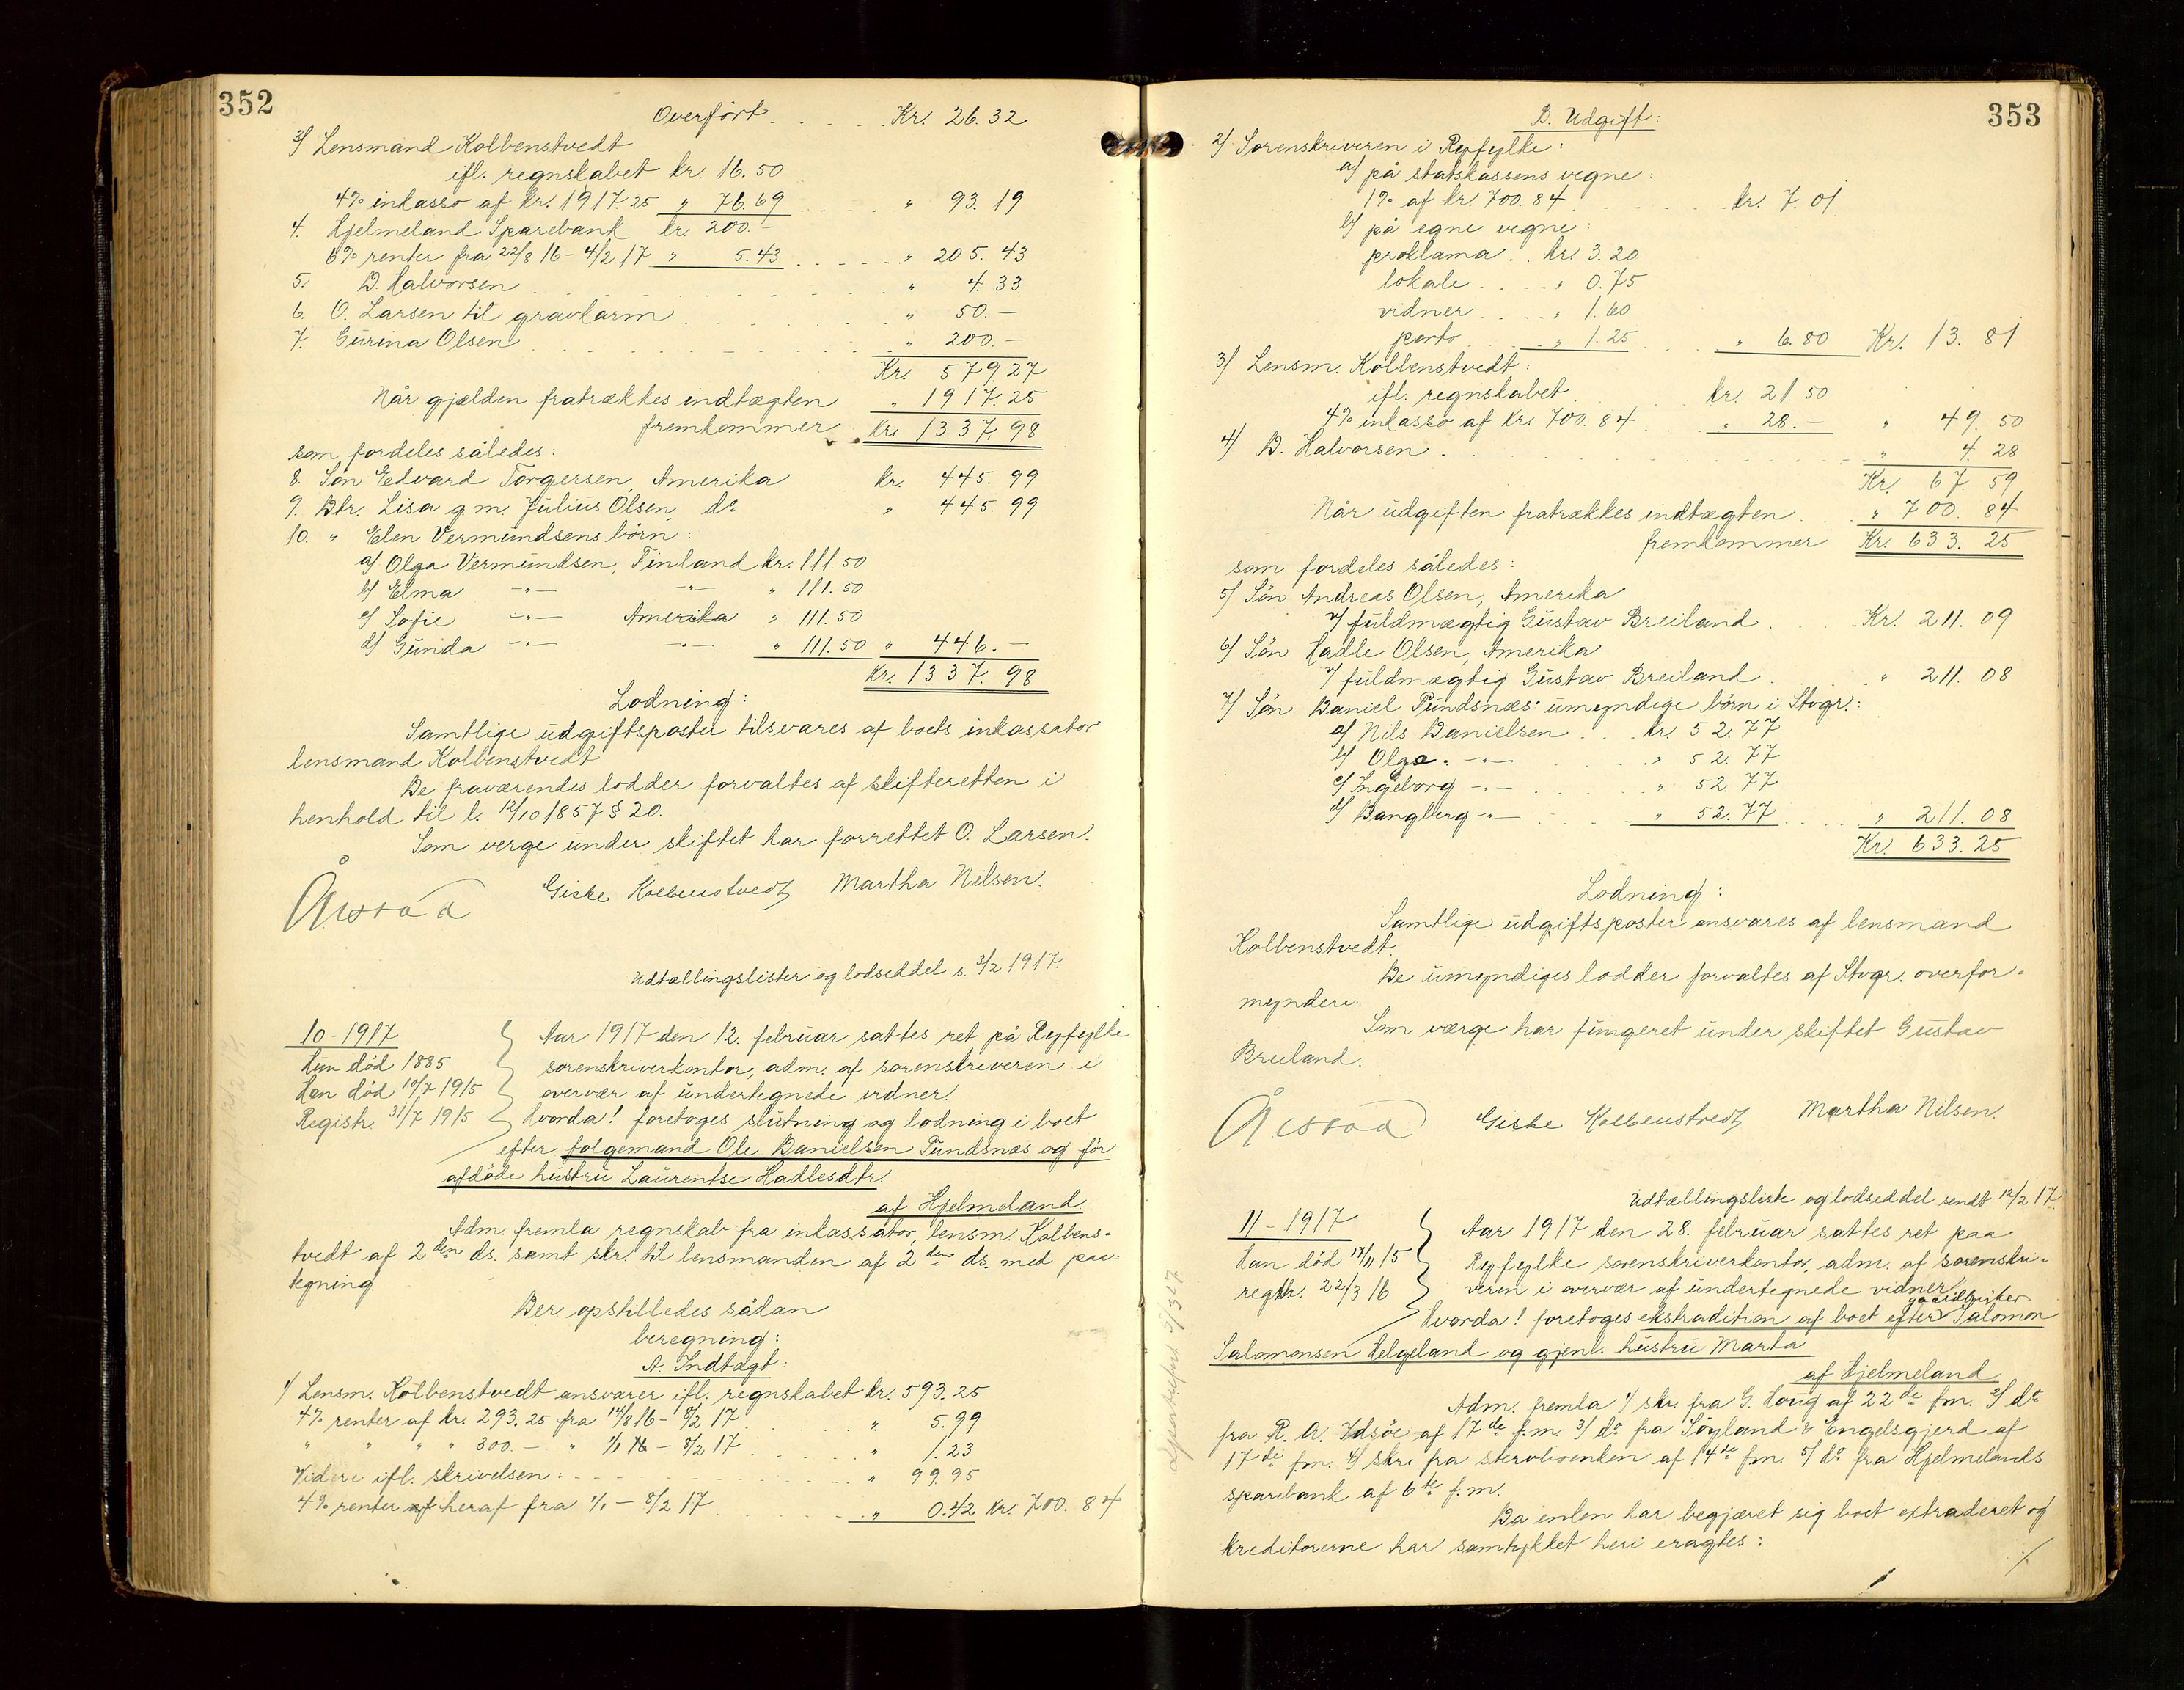 352
Overført . . . . Kr. 26.32
3/ Lensmand Kolbenstvedt
ifl. regnskabet kr. 16.50
4% inkasso af kr. 1917.25 " 76.69 . . . . " 93.19
4. Hjelmeland Sparebank kr. 200.-
6% renter fra 22/8 16 - 4/2 17 " 5.43 . . . . " 205.43
5. D. Halvorsen . . . . " 4.33
6. O. Larsen til gravlarm . . . . " 50.-
7. Gurina Olsen . . . . " 200.-
Kr. 579.27
Når gjælden fratrækkes indtægten " 1917.25
fremkommer Kr. 1337.98
som fordeles således:
8. Søn Edvard Torgersen, Amerika kr. 445.99
9. Dtr. Lisa g.m. Julius Olsen, do " 445.99
10. " Elen Vermundsens børn:
a/ Olga Vermundsen, Finland kr. 111.50
b/ Elma -"- -"- " 111.50
c/ Sofie -"- Amerika " 111.50
d/ Gunda -"- -"- " 111.50 " 446.-
Kr. 1337.98
Lodning:
Samtlige udgiftsposter tilsvares af boets inkassator
lensmand Kolbenstvedt
De fraværendes lodder forvaltes af skifteretten i
henhold til l. 12/10 1857 § 20.
Som verge under skiftet har forrettet O. Larsen.
Giske Kolbenstvedt Martha Nilsen.
Udtællingslister og lodseddel s. 3/2 1917.
10 - 1917
Hun død 1885
Han død 10/7 1915
Registr. 31/7 1915
Aar 1917 den 12. februar sattes ret på Ryfylke
sorenskriverkontor, adm. af sorenskriveren i
overvær af undertegnede vidner.
Hvorda! foretoges slutning og lodning i boet
efter følgemand Ole Danielsen Pundsnæs og før
afdøde hustru Laurentse Hadlesdtr.
af Hjelmeland.
Adm. fremla regnskab fra inkassator, lensm. Kolbens-
tvedt af 2den ds. samt skr. til lensmanden af 2den ds. med paa-
tegning.
Der opstilledes sådan
beregning:
A. Indtægt:
1/ Lensm. Kolbenstvedt ansvarer ifl. regnskabet kr. 593.25
4% renter af kr. 293.25 fra 14/8 16 - 8/2 17 . . " 5.99
" " " " 300.- " 1/1 16 - 8/2 17 . . . . " 1.23
Videre ifl. skrivelsen: . . . . " 99.95
4% renter af heraf fra 1/1 - 8/2 17 . . . . " 0.42 Kr. 700.84
353
B. Udgift:
2/ Sorenskriveren i Ryfylke:
a/ på statskassens vegne:
1% af kr. 700.84 . . . . kr. 7.01
b/ på egne vegne:
proklama . . kr. 3.20
lokale . . . . " 0.75
vidner . . . . " 1.60
porto . . . . " 1.25 . . " 6.80 Kr. 13.81
3/ Lensm. Kolbenstvedt:
ifl. regnskabet . . . . kr. 21.50
4% inkasso af kr. 700.84 . . " 28.- " 49.50
4/ D. Halvorsen . . . . " 4.28
Kr. 67.59
Når udgiften fratrækkes indtægten . . " 700.84
fremkommer Kr. 633.25
som fordeles således:
5/ Søn Andreas Olsen, Amerika
v/ fuldmægtig Gustav Breiland . . . . Kr. 211.09
6/ Søn Hadle Olsen, Amerika
v/ fuldmægtig Gustav Breiland . . . . " 211.08
7/ Søn Daniel Pundsnæs' umyndige børn i Stvgr.:
a/ Nils Danielsen . . . kr. 52.77
b/ Olga -"- . . . " 52.77
c/ Ingeborg -"- . . . " 52.77
d/ Dangberg -"- . . . " 52.77 . . . . " 211.08
Kr. 633.25
Lodning:
Samtlige udgiftsposter ansvares af lensmand
Kolbenstvedt.
De umyndiges lodder forvaltes af Stvgr. overfor-
mynderi.
Som værge har fungeret under skiftet Gustav
Breiland.
Giske Kolbenstvedt Martha Nilsen.
Udtællingsliste og lodseddel sendt 12/2 17.
11 - 1917
Han død 17/11 15
regstr. 22/3 16
Aar 1917 den 28. februar sattes ret paa
Ryfylke sorenskriverkontor, adm. af sorenskri-
veren i overvær af undertegnede vidner.
gaardbruker
Hvorda! foretoges ekstradition af boet efter Salomon
Salomonsen Helgeland og gjenl. hustru Marta
af Hjelmeland
Adm. fremla 1/ skr. fra G. Haug af 22de f.m. 2/ do
fra R. A. Idsøe af 17de f.m. 3/ do fra Søyland & Engelsgjerd af
17de f.m. 4/ skr. fra stervboenken af 14de f.m. 5/ do fra Hjelmelands
sparebank af 6te f.m.
Da enken har begjæret sig boet extraderet og
kreditorerne har samtykket heri eragtes: